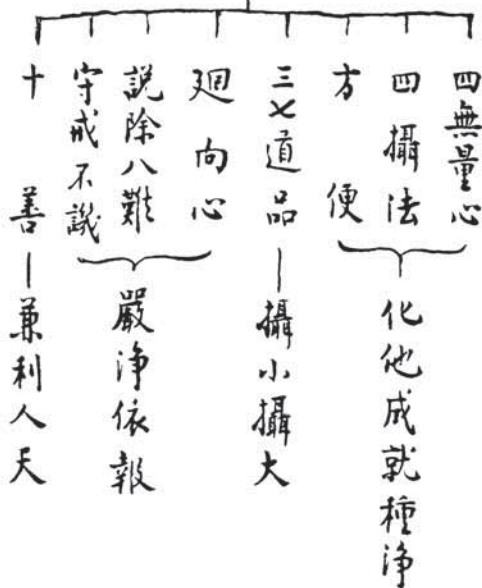 四無量心
四攝法
方便
化他成就種淨
三七道品－攝小攝大
廻向心
説除八難
守戒不譏
嚴淨依報
十善－兼利人天